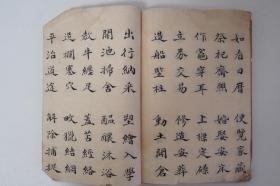 如看日曆 便覽家藏
祭祀齋醮 婚娶安床
作竈穿耳 上樑定磉
立券交易 修造安葬
造船豎柱 動土開倉
出行納采 塑繪入學
開池掃舍 醞釀沐浴
放牛纏足 蓋苫經絡
造欄塞穴 畋獵結網
平治道塗 解除捕捉